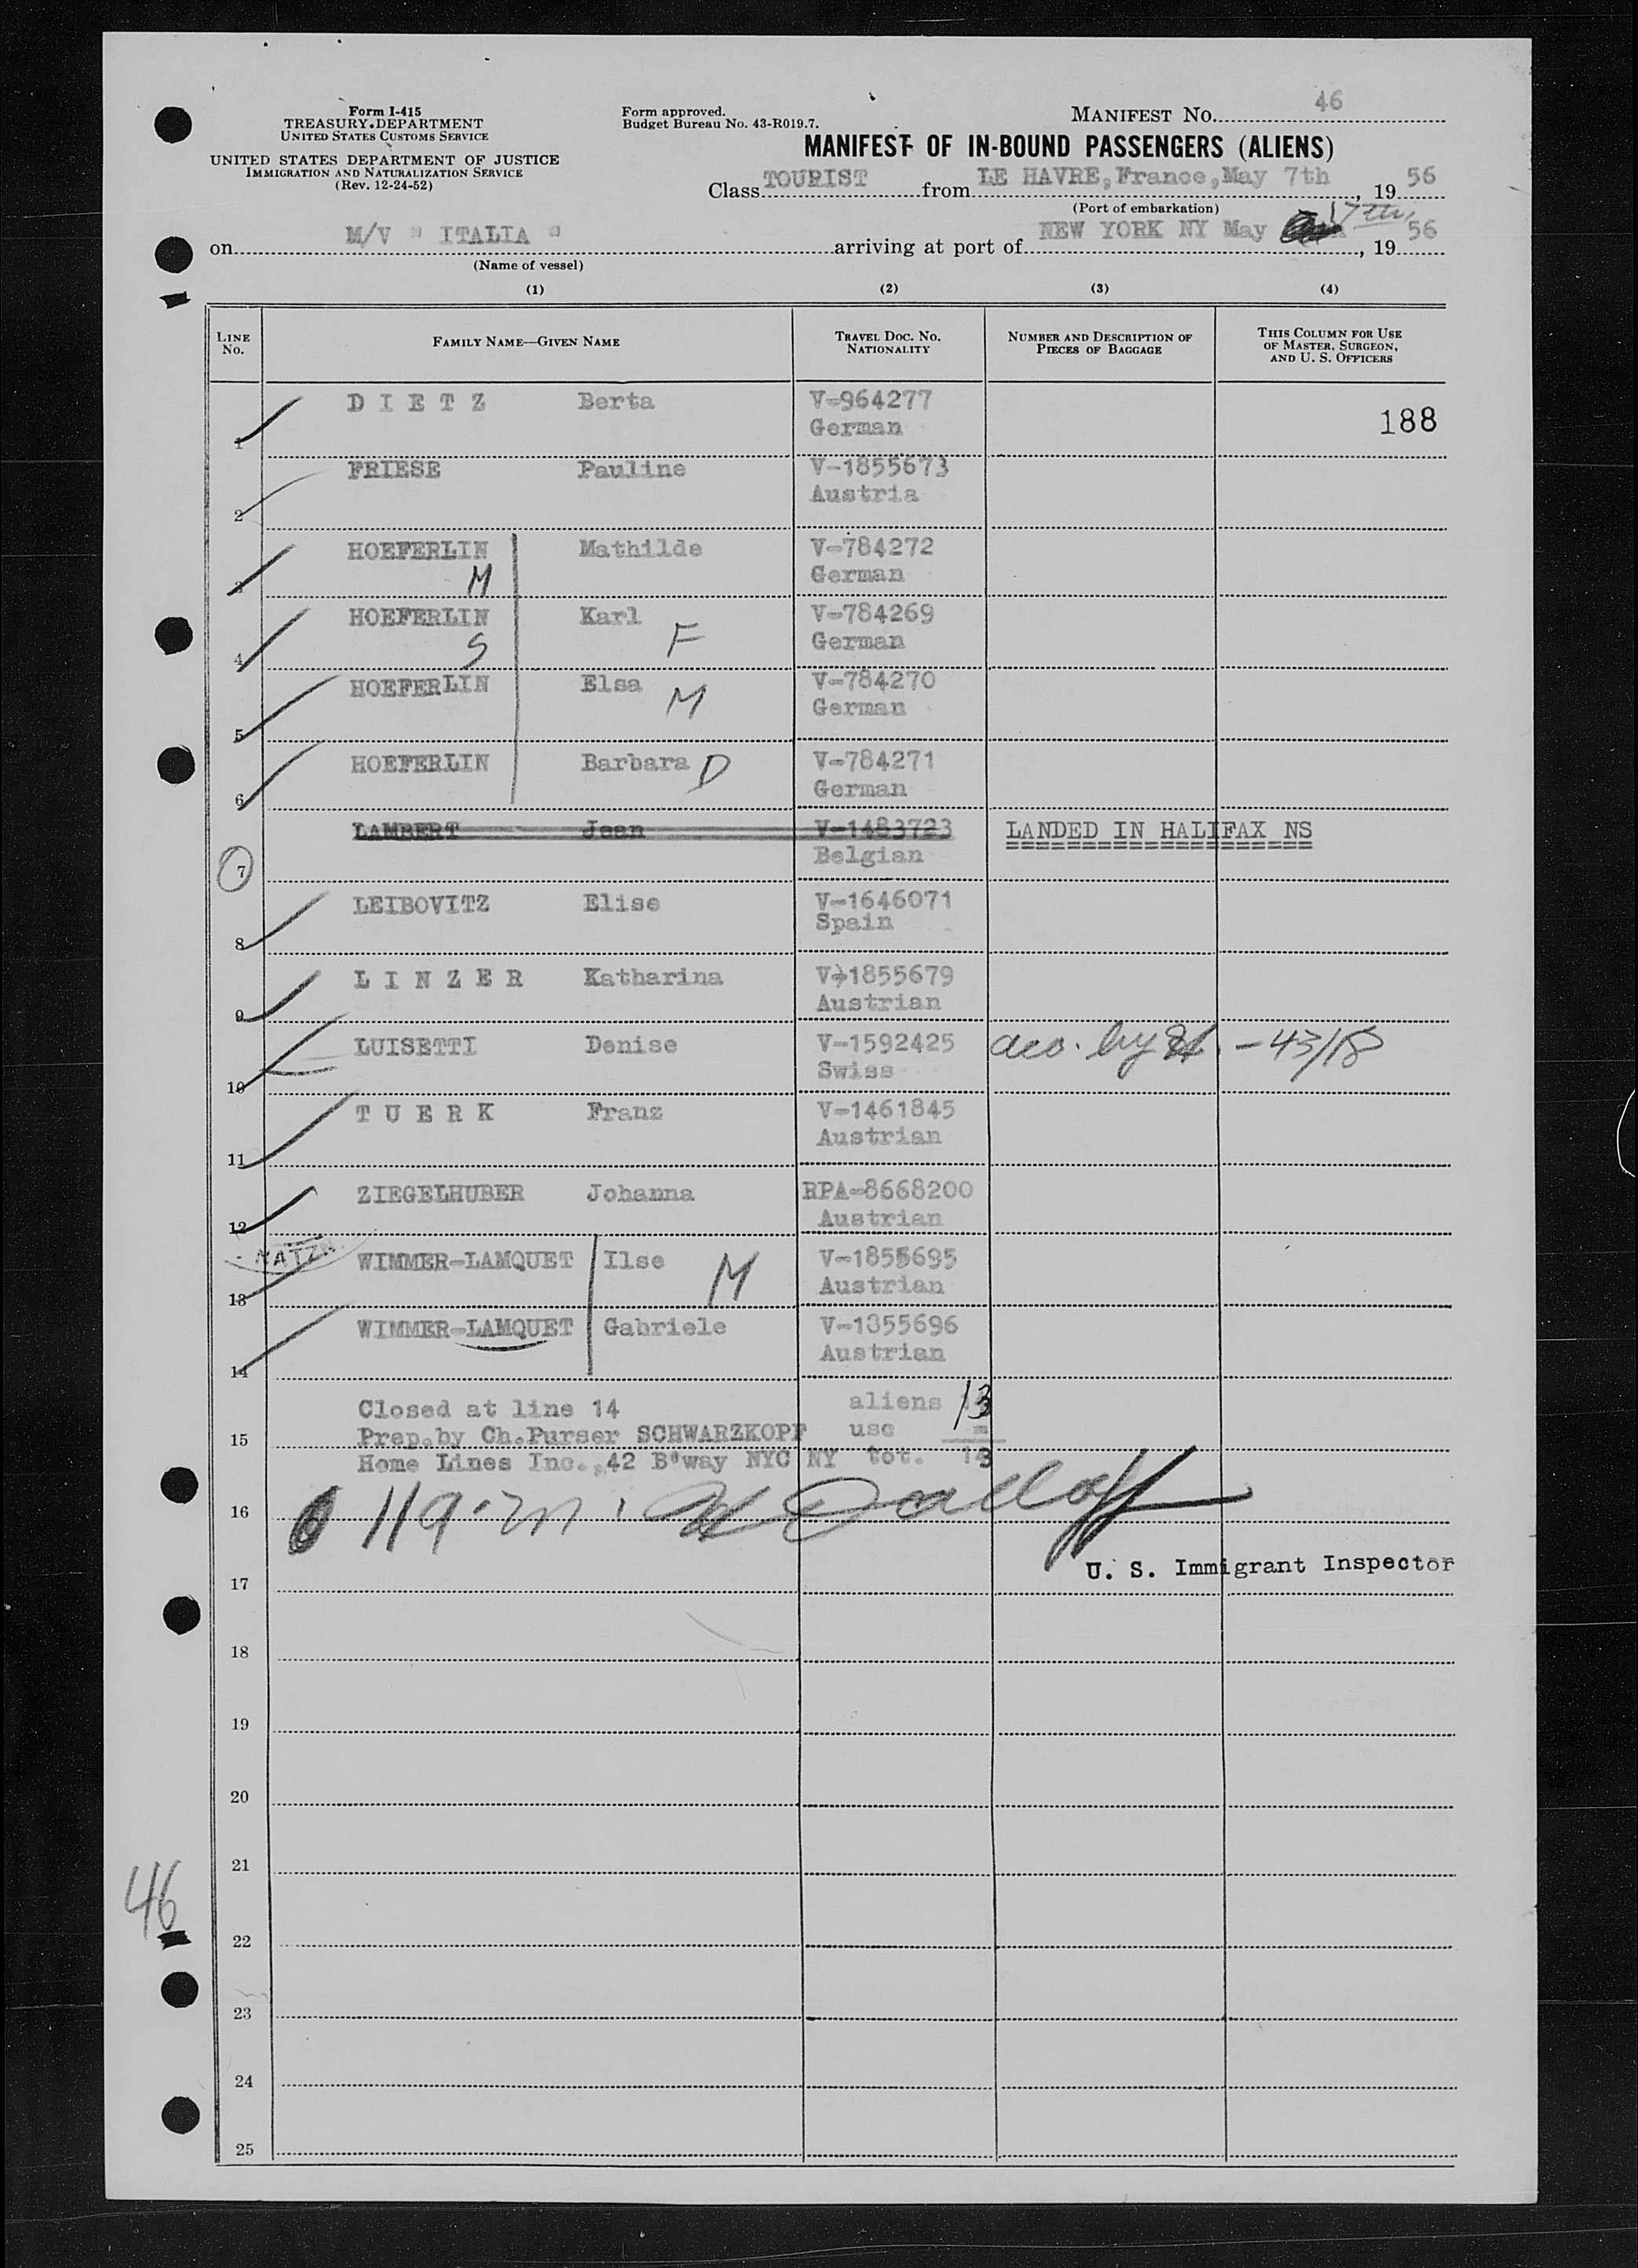 Form I-415
TREASURY DEPARTMENT
UNITED STATES CUSTOMS SERVICE
UNITED STATES DEPARTMENT OF JUSTICE
IMMIGRATION AND NATURALIZATION SERVICE
(Rev. 12-24-52)
Form approved.
Budget Bureau No. 43-R019.7.
MANIFEST NO. 46
MANIFEST OF IN-BOUND PASSENGERS (ALIENS)
Class TOURIST from LE HAVRE, France, May 7th, 19 56
(Port of embarkation)
on M/V " ITALIA " arriving at port of NEW YORK NY May 17th, 19 56
(Name of vessel)
(1) (2) (3) (4)
LINE No. FAMILY NAME—GIVEN NAME TRAVEL DOC. NO. NATIONALITY NUMBER AND DESCRIPTION OF PIECES OF BAGGAGE THIS COLUMN FOR USE OF MASTER, SURGEON, AND U. S. OFFICERS
1 D I E T Z Berta V-964277 German 188
2 FRIESE Pauline V-1855673 Austria
3 HOEFERLIN M Mathilde V-784272 German
4 HOEFERLIN S Karl F V-784269 German
5 HOEFERLIN Elsa M V-784270 German
6 HOEFERLIN Barbara D V-784271 German
7 LAMBERT Jean V-1483723 Belgian LANDED IN HALIFAX NS
8 LEIBOVITZ Elise V-1646071 Spain
9 L I N Z E R Katharina V-1855679 Austrian
10 LUISETTI Denise V-1592425 Swiss acc. by - 43/18
11 T U E R K Franz V-1461845 Austrian
12 ZIEGELHUBER Johanna RPA-8668200 Austrian
NATZ
13 WIMMER-LAMQUET Ilse M V-1855695 Austrian
14 WIMMER-LAMQUET Gabriele V-1855696 Austrian
Closed at line 14 aliens 13
15 Prep.by Ch.Purser SCHWARZKOPF usc -
Home Lines Inc., 42 B'way NYC NY tot. 13
16
U. S. Immigrant Inspector
17
18
19
20
21
46
22
23
24
25